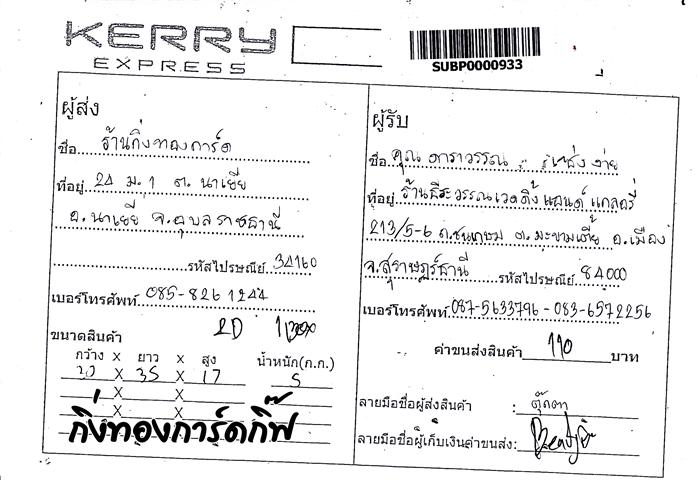 KERRY
EXPRESS
SUBP0000933
ผู้ส่ง
ชื่อ ร้านกิ่งทองการ์ด
ที่อยู่ 24 ม.1 ต. นาเยีย
อ.นาเยีย จ.อุบลราชธานี
รหัสไปรษณีย์ 34160
เบอร์โทรศัพท์ 085-826 1244
2D
ขนาดสินค้า
กว้าง X ยาว X สูง น้ำหนัก(ก.ก.)
20 X 35 X 17 5
X X
X X
กิ่งทองการ์ดกิ๊ฟ
ผู้รับ
ชื่อ คุณ ดาราวรรณ
ที่อยู่ ร้านธีระวรรณเวดดิ้ง แอนด์ แกลอรี่
213/5-6 ถ.ชนเกษม ต.มะขามเตี้ย อ.เมือง
จ.สุราษฎร์ธานี รหัสไปรษณีย์ 84000
เบอร์โทรศัพท์ 087-5633796 - 083-6572256
ค่าขนส่งสินค้า 110 บาท
ลายมือชื่อผู้ส่งสินค้า : ตุ๊กตา
ลายมือชื่อผู้เก็บเงินค่าขนส่ง: